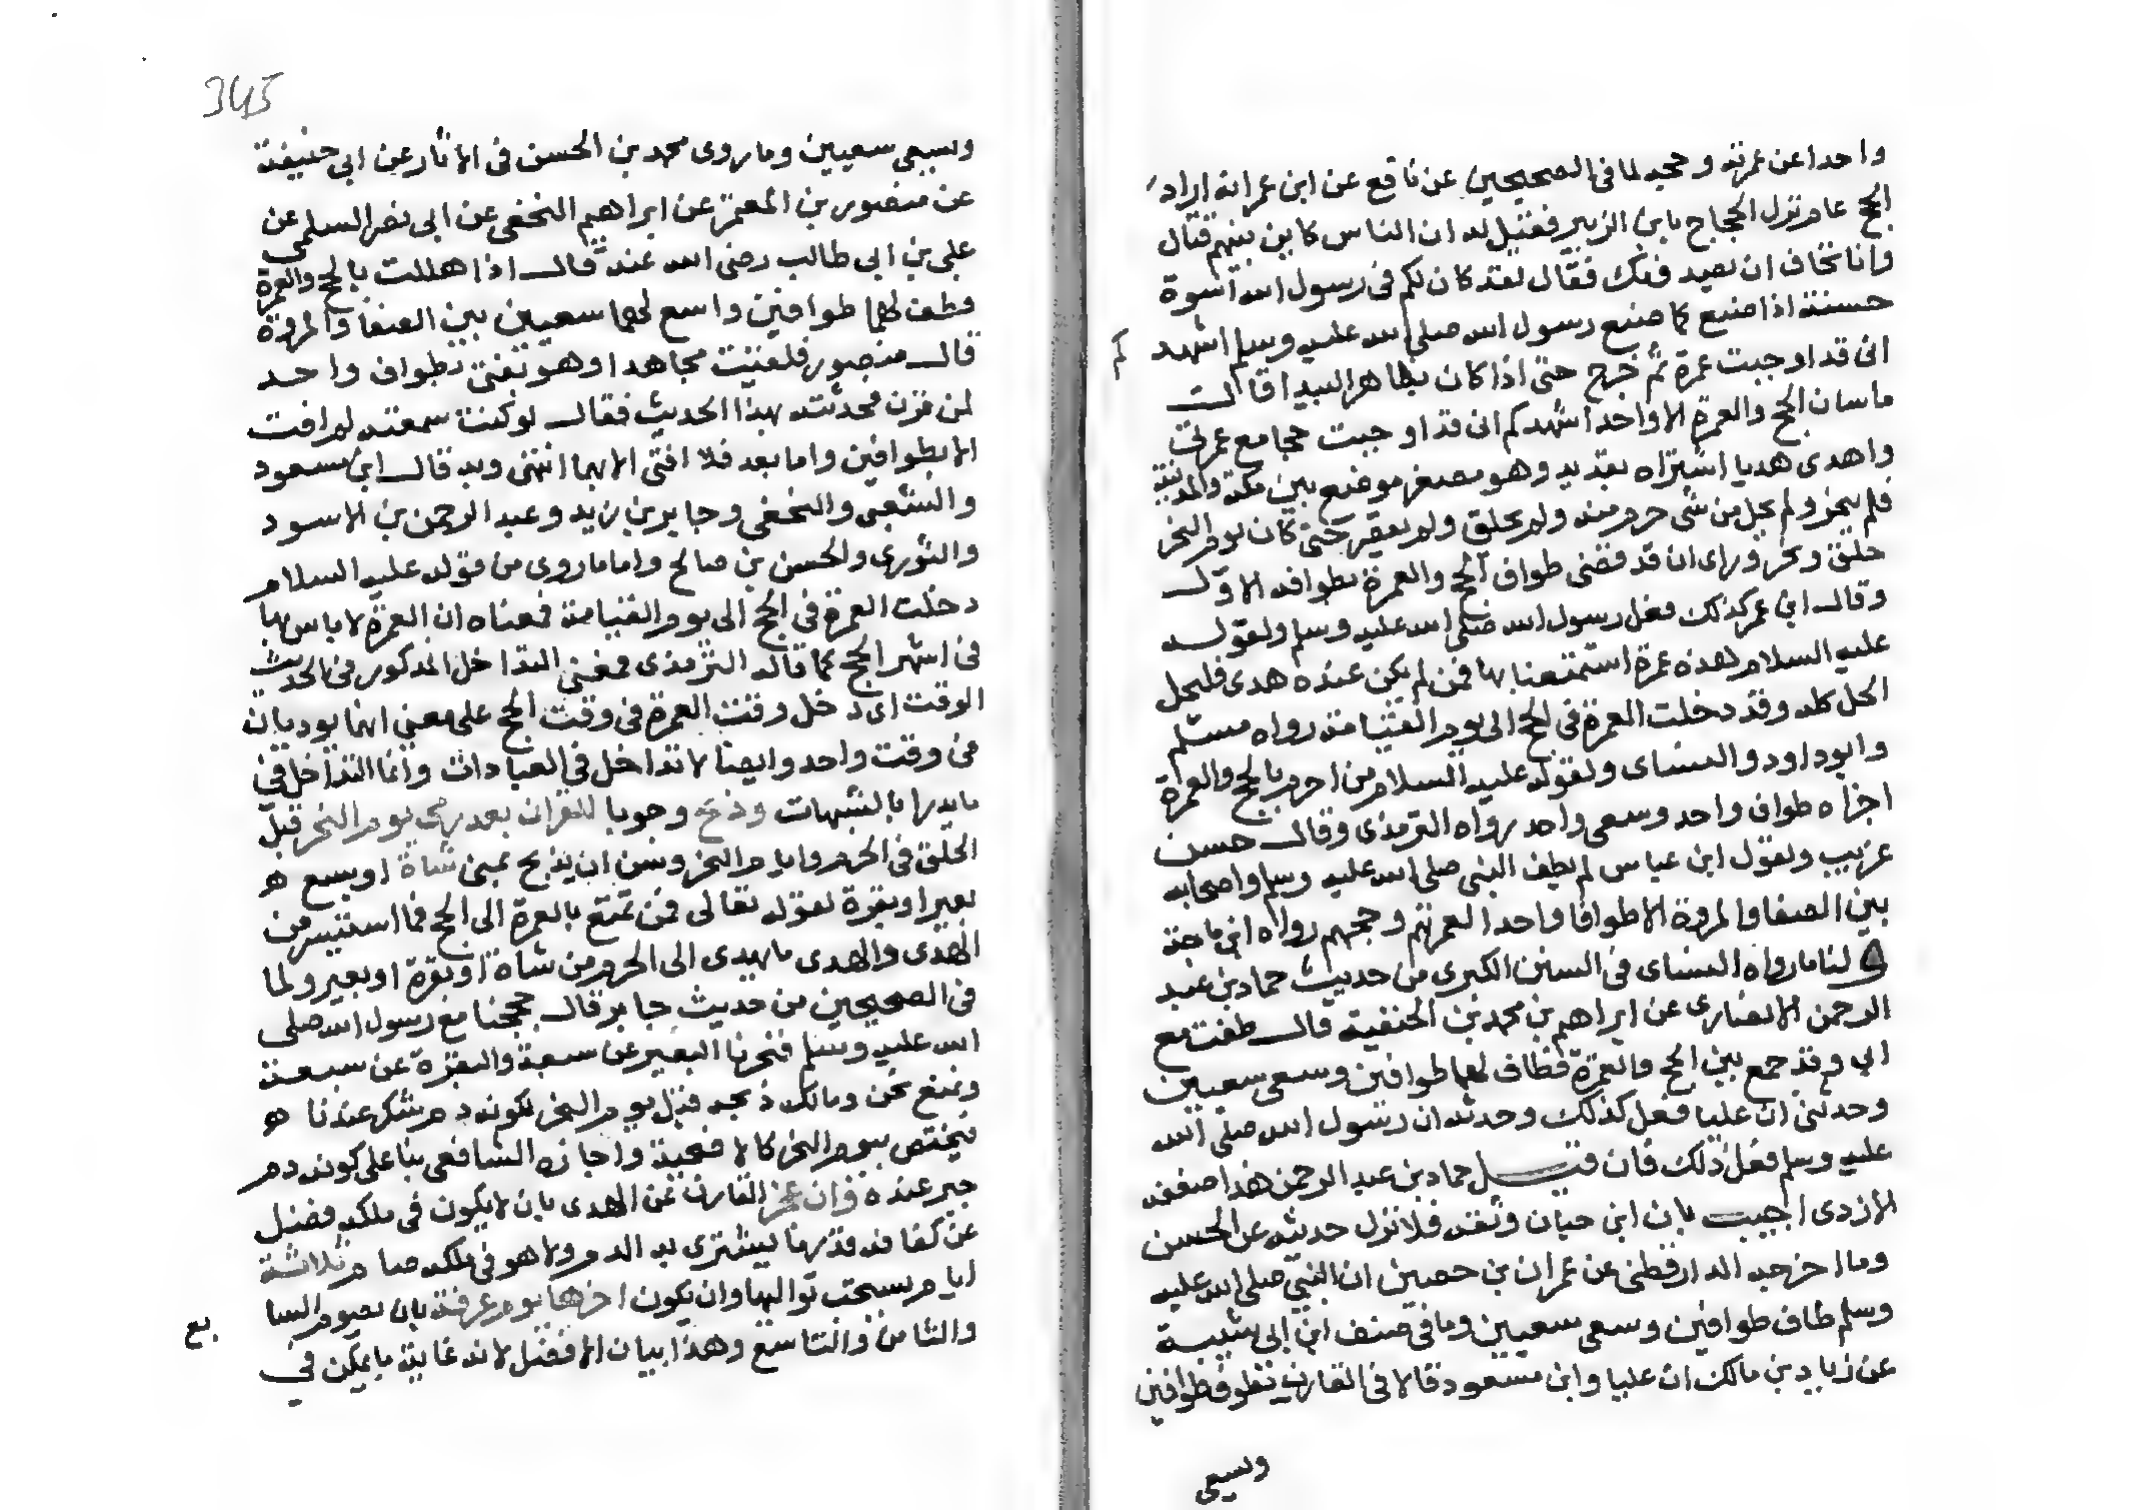 واحدا عن عمرته وحجه لما فى الصحيحين عن نافع عن ابن عمر انه اراد
الحج عام نزل الحجاج بابن الزبير فقيل له ان الناس كاين بينهم قتال
وانا نخاف ان يصدوك فقال لقد كان لكم فى رسول الله اسوة
حسنة اذا صنع كما صنع رسول الله صلى الله عليه وسلم اشهد
كم
انى قد اوجبت عمرة ثم خرج حتى اذا كان بظاهر البيدا قال
ما شان الحج والعمرة الا واحد اشهدكم انى قد اوجبت حجا مع عمرتى
واهدى هديا اشتراه بقديد وهو مصغر موضع بين مكة والمدينة
فلم ينحر ولم يحل من شى حرم منه ولم يحلق ولم يقصر حتى كان يوم النحر
حلق ونحر وراى ان قد قضى طواف الحج والعمرة بطوافه الاول
وقال ابن عمر كذلك فعل رسول الله صلى الله عليه وسلم ولقوله
عليه السلام هذه عمرة استمتعنا بها فمن لم يكن عنده هدى فليحل
الحل كله وقد دخلت العمرة فى الحج الى يوم القيامة رواه مسلم
وابو داود والنساى ولقوله عليه السلام من احرم بالحج والعمرة
اجزاه طواف واحد وسعى واحد رواه الترمذى وقال حسن
غريب ولقول ابن عباس لم يطف النبى صلى الله عليه وسلم واصحابه
بين الصفا والمروة الا طوافا واحدا لعمرتهم وحجهم رواه ابن ماجة
ولنا ما رواه النساى فى السنن الكبرى من حديث حماد بن عبد
الرحمن الانصارى عن ابراهيم بن محمد بن الحنفية قال طفت مع
ابى وقد جمع بين الحج والعمرة فطاف لهما طوافين وسعى سعيين
وحدثنى ان عليا فعل كذلك وحدثه ان رسول الله صلى الله
عليه وسلم فعل ذلك فان قيل حماد بن عبد الرحمن هذا ضعفه
الازدى اجيب بان ابن حبان وثقه فلا نزل حديثه عن الحسن
وما اخرجه الدارقطنى عن عمران بن حصين ان النبى صلى الله عليه
وسلم طاف طوافين وسعى سعيين وما فى مصنف ابن ابى شيبة
عن زياد بن مالك ان عليا وابن مسعود قالا فى القارن يطوف طوافين
ويسعى
345
ويسعى سعيين وما روى محمد بن الحسن فى الاثار عن ابى حنيفة
عن منصور بن المعتمر عن ابراهيم النخعى عن ابى نصر السلمى عن
على بن ابى طالب رضى الله عنه قال اذا هللت بالحج والعمرة
فطف لهما طوافين واسع لهما سعيين بين الصفا والمروة
قال منصور فلقيت مجاهدا وهو يفتى بطواف واحد
لمن قرن فحدثته بهذا الحديث فقال لو كنت سمعته لم افت
الا بطوافين واما بعد فلا افتى الا بهما انتهى وبه قال ابن مسعود
والشعبى والنخعى وجابر بن زيد وعبد الرحمن بن الاسود
والثورى والحسن بن صالح واما ما روى من قوله عليه السلام
دخلت العمرة فى الحج الى يوم القيامة فمعناه ان العمرة لا باس بها
فى اشهر الحج كما قاله الترمذى فمعنى التداخل المذكور فى الحديث
الوقت اى دخل وقت العمرة فى وقت الحج على معنى انهما يوديان
فى وقت واحد وايضا لا تداخل فى العبادات وانما التداخل فى
ما يدرا بالشبهات وذبح وجوبا للقران بعد رمى يوم النحر قبل
الحلق فى الحرم وايام النحر وسن ان يذبح بمنى شاة او سبع
بعير او بقرة لقوله تعالى فمن تمتع بالعمرة الى الحج فما استيسر من
الهدى والهدى ما يهدى الى الحرم من شاة او بقرة او بعير ولما
فى الصحيحين من حديث جابر قال حججنا مع رسول الله صلى
الله عليه وسلم فنحرنا البعير عن سبعة والبقرة عن سبعة
ونمنع نحن ومالك ذبحه قبل يوم النحر لكونه دم شكر عندنا
فيختص بيوم النحر كالاضحية واجازه الشافعى بنا على كونه دم
جبر عنده وان عجز القارن عن الهدى بان لا يكون فى ملكه فضل
عن كفاف قدر ما يشترى به الدم ولا هو فى ملكه صام ثلاثة
ايام يستحب تواليها وان يكون اخرها يوم عرفة بان يصوم السا
بع
والثامن والتاسع وهذا بيان الافضل لانه غاية ما يمكن فى